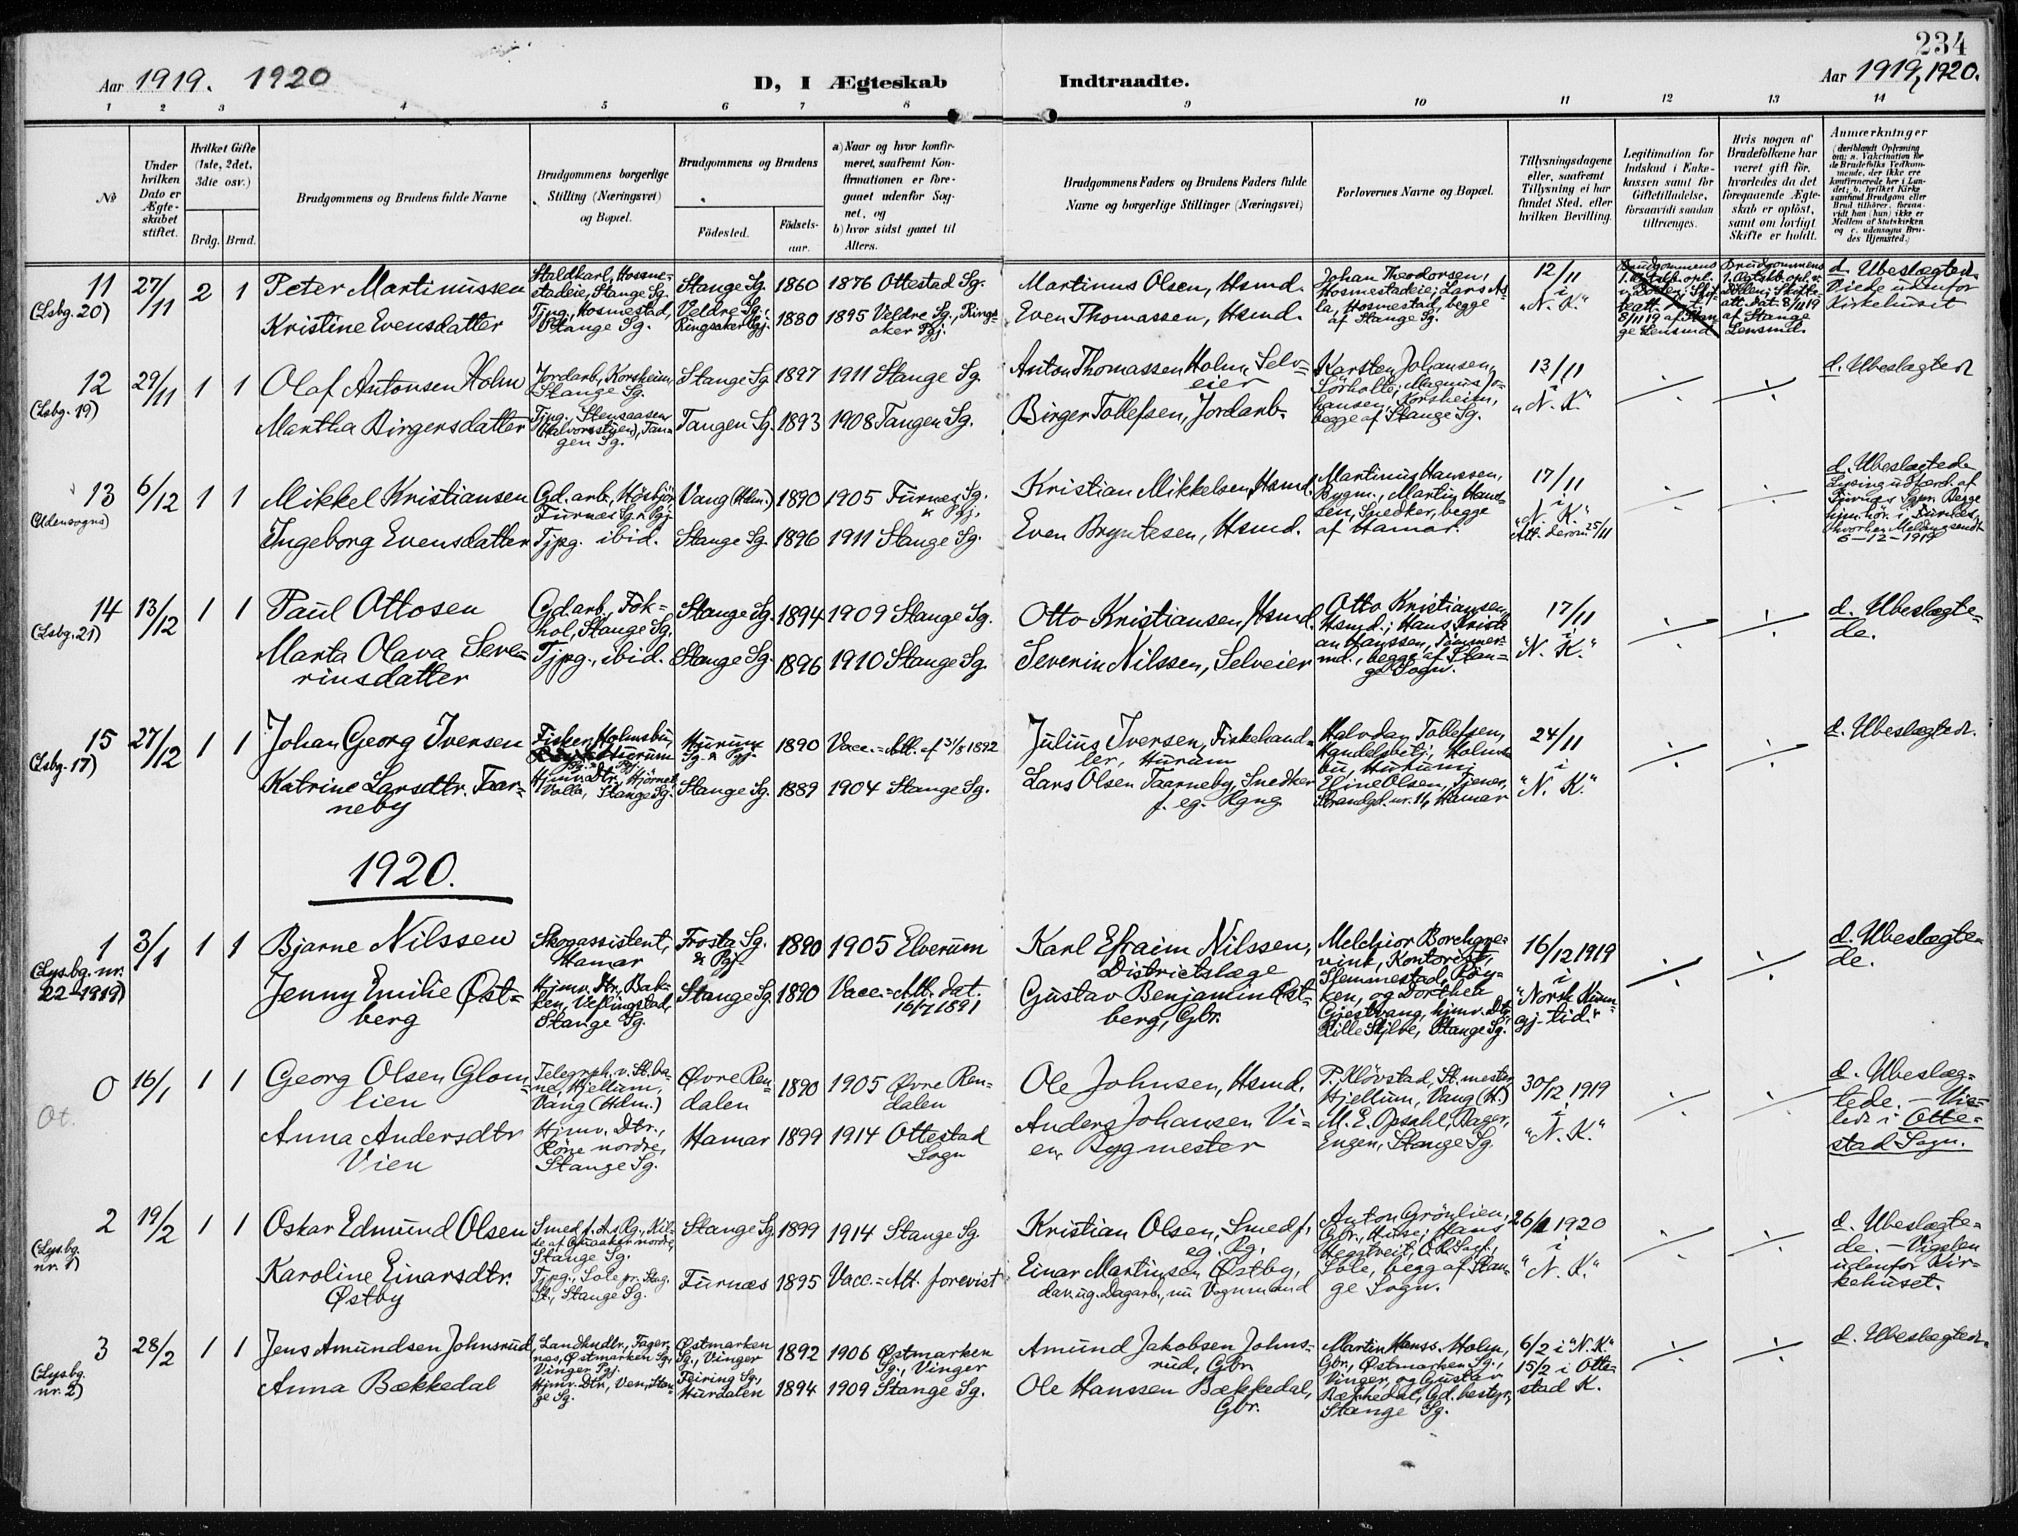 234
Aar 1919. 1920
D, I Ægteskab Indtraadte.
Aar 1919, 1920.
1 2 3 4 5 6 7 8 9 10 11 12 13 14
No
Under hvilken Dato er Ægteskabet stiftet.
Hvilket Gifte (1ste, 2det, 3die osv.)
Brdg. Brud.
Brudgommens og Brudens fulde Navne
Brudgommens borgerlige Stilling (Næringsvei) og Bopæl.
Brudgommens og Brudens
Födested.
Födsels-aar.
a) Naar og hvor konfirmeret, saafremt Konfirmationen er foregaaet udenfor Sognet, og
b) hvor sidst gaaet til Alters.
Brudgommens Faders og Brudens Faders fulde Navne og borgerlige Stillinger (Næringsvei)
Forlovernes Navne og Bopæl.
Tillysningsdagene eller, saafremt Tillysning ei har fundet Sted, efter hvilken Bevilling.
Legitimation for Indskud i Enkekassen samt for Giftetilladelse, forsaavidt saadan tiltrænges.
Hvis nogen af Brudefolkene har været gift för, hvorledes da det foregaaende Ægteskab er oplöst, samt om lovligt Skifte er holdt.
Anmærkninger
11 (Lsbg. 20) 27/11 2 1
Peter Martinussen
Staldkarl, Hosmestadeie, Stange Sg.
Stange Sg. 1860 1876 Ottestad Sg.
Martinus Olsen, Hsmd.
Johan Theodorsen, Hosmestadeie; Lars Asla, Hosmestad, begge af Stange Sg.
12/11 i "N. K."
d. Ubeslægted. Viede udenfor Kirkehuset
Kristine Evensdatter
Tjpg., Hosmestad, Stange Sg.
Veldre Sg., Ringsaker Pgj. 1880 1895 Veldre Sg., Ringsaker Pgj.
Even Thomassen, Hsmd.
12 (Lsbg. 19) 29/11 1 1
Olaf Antonsen Holm
Jordarb., Korsheim, Stange Sg.
Stange Sg. 1897 1911 Stange Sg.
Anton Thomassen Holm, Selveier
Karsten Johansen, Sörholte; Magnus Johansen, Korsheim, begge af Stange Sg.
13/11 i "N. K."
d. Ubeslægted
Martha Birgersdatter
Tjpg., Stensaasen (Halvorsstuen), Tangen Sg.
Tangen Sg. 1893 1908 Tangen Sg.
Birger Tollefsen, Jordarb.
13 (Udensogns) 6/12 1 1
Mikkel Kristiansen
Gd. arb., Hösbjör, Furnes Sg. & Pgj.
Vang (Hdm.) 1890 1905 Furnes Sg. & Pgj.
Kristian Mikkelsen, Hsmd.
Martinus Hanssen, Bygm., Martin Hanssen, Snedker, begge af Hamar.
17/11 i "N. K." Att. derom 25/11
d. Ubeslægtede
6-12-1919
Ingeborg Evensdatter
Tjpg. ibid.
Stange Sg. 1896 1911 Stange Sg.
Even Bryntesen, Hsmd.
14 (Lsbg. 21) 13/12 1 1
Paul Ottosen
Gd arb., Fokhol, Stange Sg.
Stange Sg. 1894 1909 Stange Sg.
Otto Kristiansen, Hsmd.
Otto Kristiansen, Hsmd.; Hans Kristian Hanssen, Tömmermd., begge af Stange Sogn.
17/11 i "N. K."
d. Ubeslægtede.
Marta Olava Severinsdatter
Tjpg., ibid.
Stange Sg. 1896 1910 Stange Sg.
Severin Nilssen, Selveier
15 (Lsbg. 17) 27/12 1 1
Johan Georg Iversen
Fisker, Holmsbu, Hurum Sg. & Pgj.
Hurum Sg. & Pgj. 1890 Vacc. = Att. af 31/8 1892
Julius Iversen, Fiskehandler, Hurum
Halvdan Tollefsen, Handelsbetj., Holmsbu, Hurum; Eline Olsen, Tjener, Strandgd. nr. 14, Hamar
24/11 i "N. K."
d. Ubeslægted.
Katrine Larsdtr. Taarneby
Hjmv. Dtr., Hjörnevolla, Stange Sg.
Stange Sg. 1889 1904 Stange Sg.
Lars Olsen Taarneby, Snedker f. eg. Rgng
1920.
1 (Lys. bg. nr. 22-1919) 3/1 1 1
Bjarne Nilssen
Skogassistent, Hamar
Frosta Sg. & Pgj. 1890 1905 Elverum
Karl Efraim Nilssen, Distrietslæge
Melchior Borchgrevink, Kontorist, Slemmestad, Röyken, og Dorthea Gjestvang, hjmv. Dtr, Lille Skjelve, Stange Sg.
16/12 1919 i "Norsk Kunngj.-tid."
d. Ubeslægtede.
Jenny Emilie Østberg
Hjmv. Dtr., Bakken, Vestingstad, Stange Sg.
Stange Sg 1890 Vacc. = Att. dat. 16/7 1891
Gustav Benjamin Østberg, Gbr.
0 Ot. 16/1 1 1
Georg Olsen Glomlien
Telegraph. v. St.bane, Hjellum, Vang (Hdm.)
Øvre Rendalen 1890 1905 Øvre Rendalen
Ole Johnsen, Hsmd.
P. Klövstad, St.mester, Hjellum, Vang (H.) M. E. Opsahl, Bager, Engen, Stange Sg.
30/12 1919 i "N. K."
d. Ubeslægtede. - Viede i Ottestad Sogn.
Anna Andersdtr Vien
Hjmv. Dtr., Röne nordre, Stange Sg.
Hamar 1899 1914 Ottestad Sogn
Anders Johansen Vien, Bygmester
2 (Lys. bg. nr. 1) 19/2 1 1
Oskar Edmund Olsen
Stange Sg.
Stange Sg 1899 1914 Stange Sg.
Kristian Olsen, Smed f. eg. Rg.
Anton Grönlien, Gbr., Huse; Hans Heggtveit, Sole, begg af Stange Sogn.
26/1 1920 i "N. K."
d. Ubeslægtede. - Vigslen udenfor Kirkehuset.
Karoline Einarsdtr. Østby
Tjpg., Sole pr. Stag. St., Stange Sg.
Furnæs 1895 Vacc. = Att. forevist
Einar Martinsen Østby, Dagarb., nu Vognmand
3 (Lys. bg. nr. 2) 28/2 1 1
Jens Amundsen Johnsrud
Landhndlr., Fagernes, Østmarken Sg., Vinger Pgj.
Østmarken Sg., Vinger 1892 1906 Østmarken Sg., Vinger
Amund Jakobsen Johnsrud, Gbr.
Martin Hanss. Holm, Gbr., Østmarken Sg., Vinger, og Gustav Bækkedal, Gd. bestyr, Stange Sg.
6/2 i "N. K." 15/2 i Ottestad K.
d. Ubeslægted.
Anna Bækkedal
Hjmv. Dtr, Ven, Stange Sg.
Feiring Sg., Hurdalen 1894 1909 Stange Sg.
Ole Hanssen Bækkedal, Gbr.